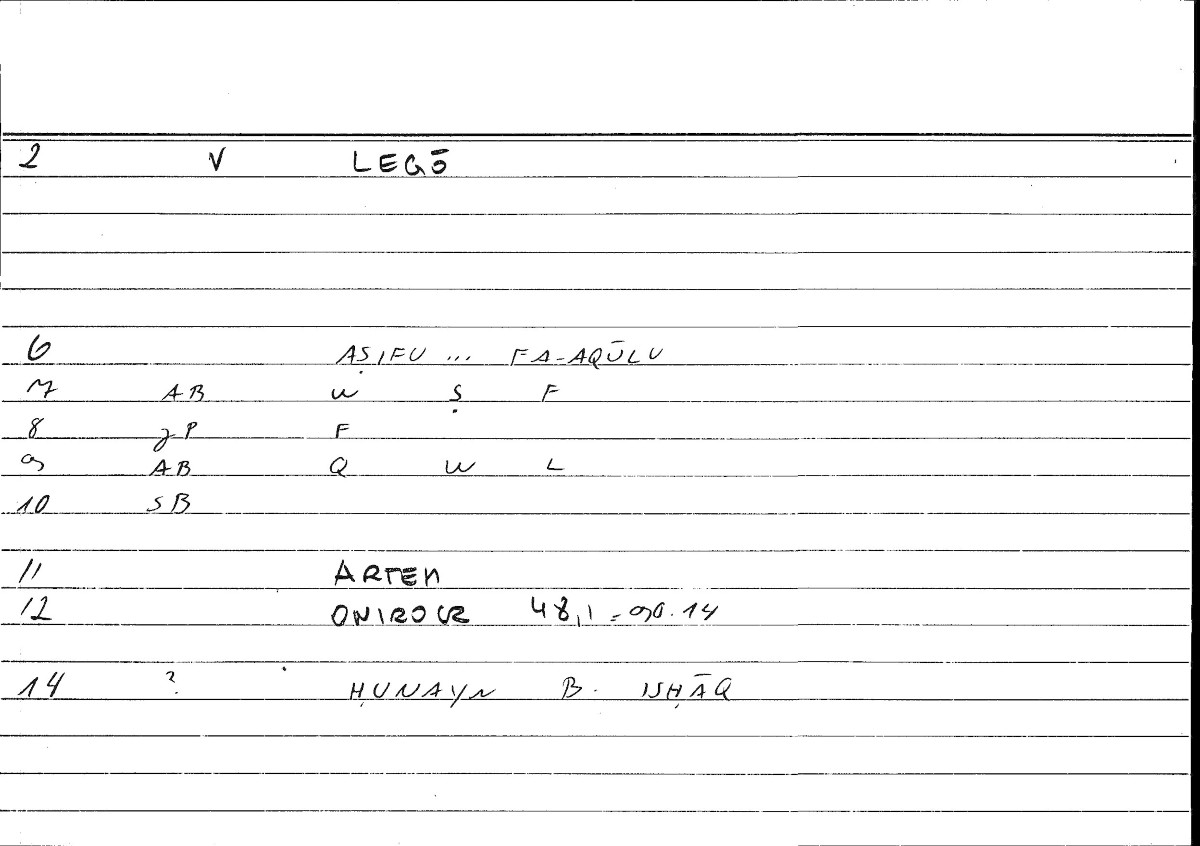 2 V LEGŌ
6 AṢIFU ... FA-AQŪLU
7 AB W Ṣ F
8 JP F
9 AB Q W L
10 SB
11 ARTEM
12 ONIROCR 48,1 = 90.14
14 ? ḤUNAYN B. ISḤĀQ